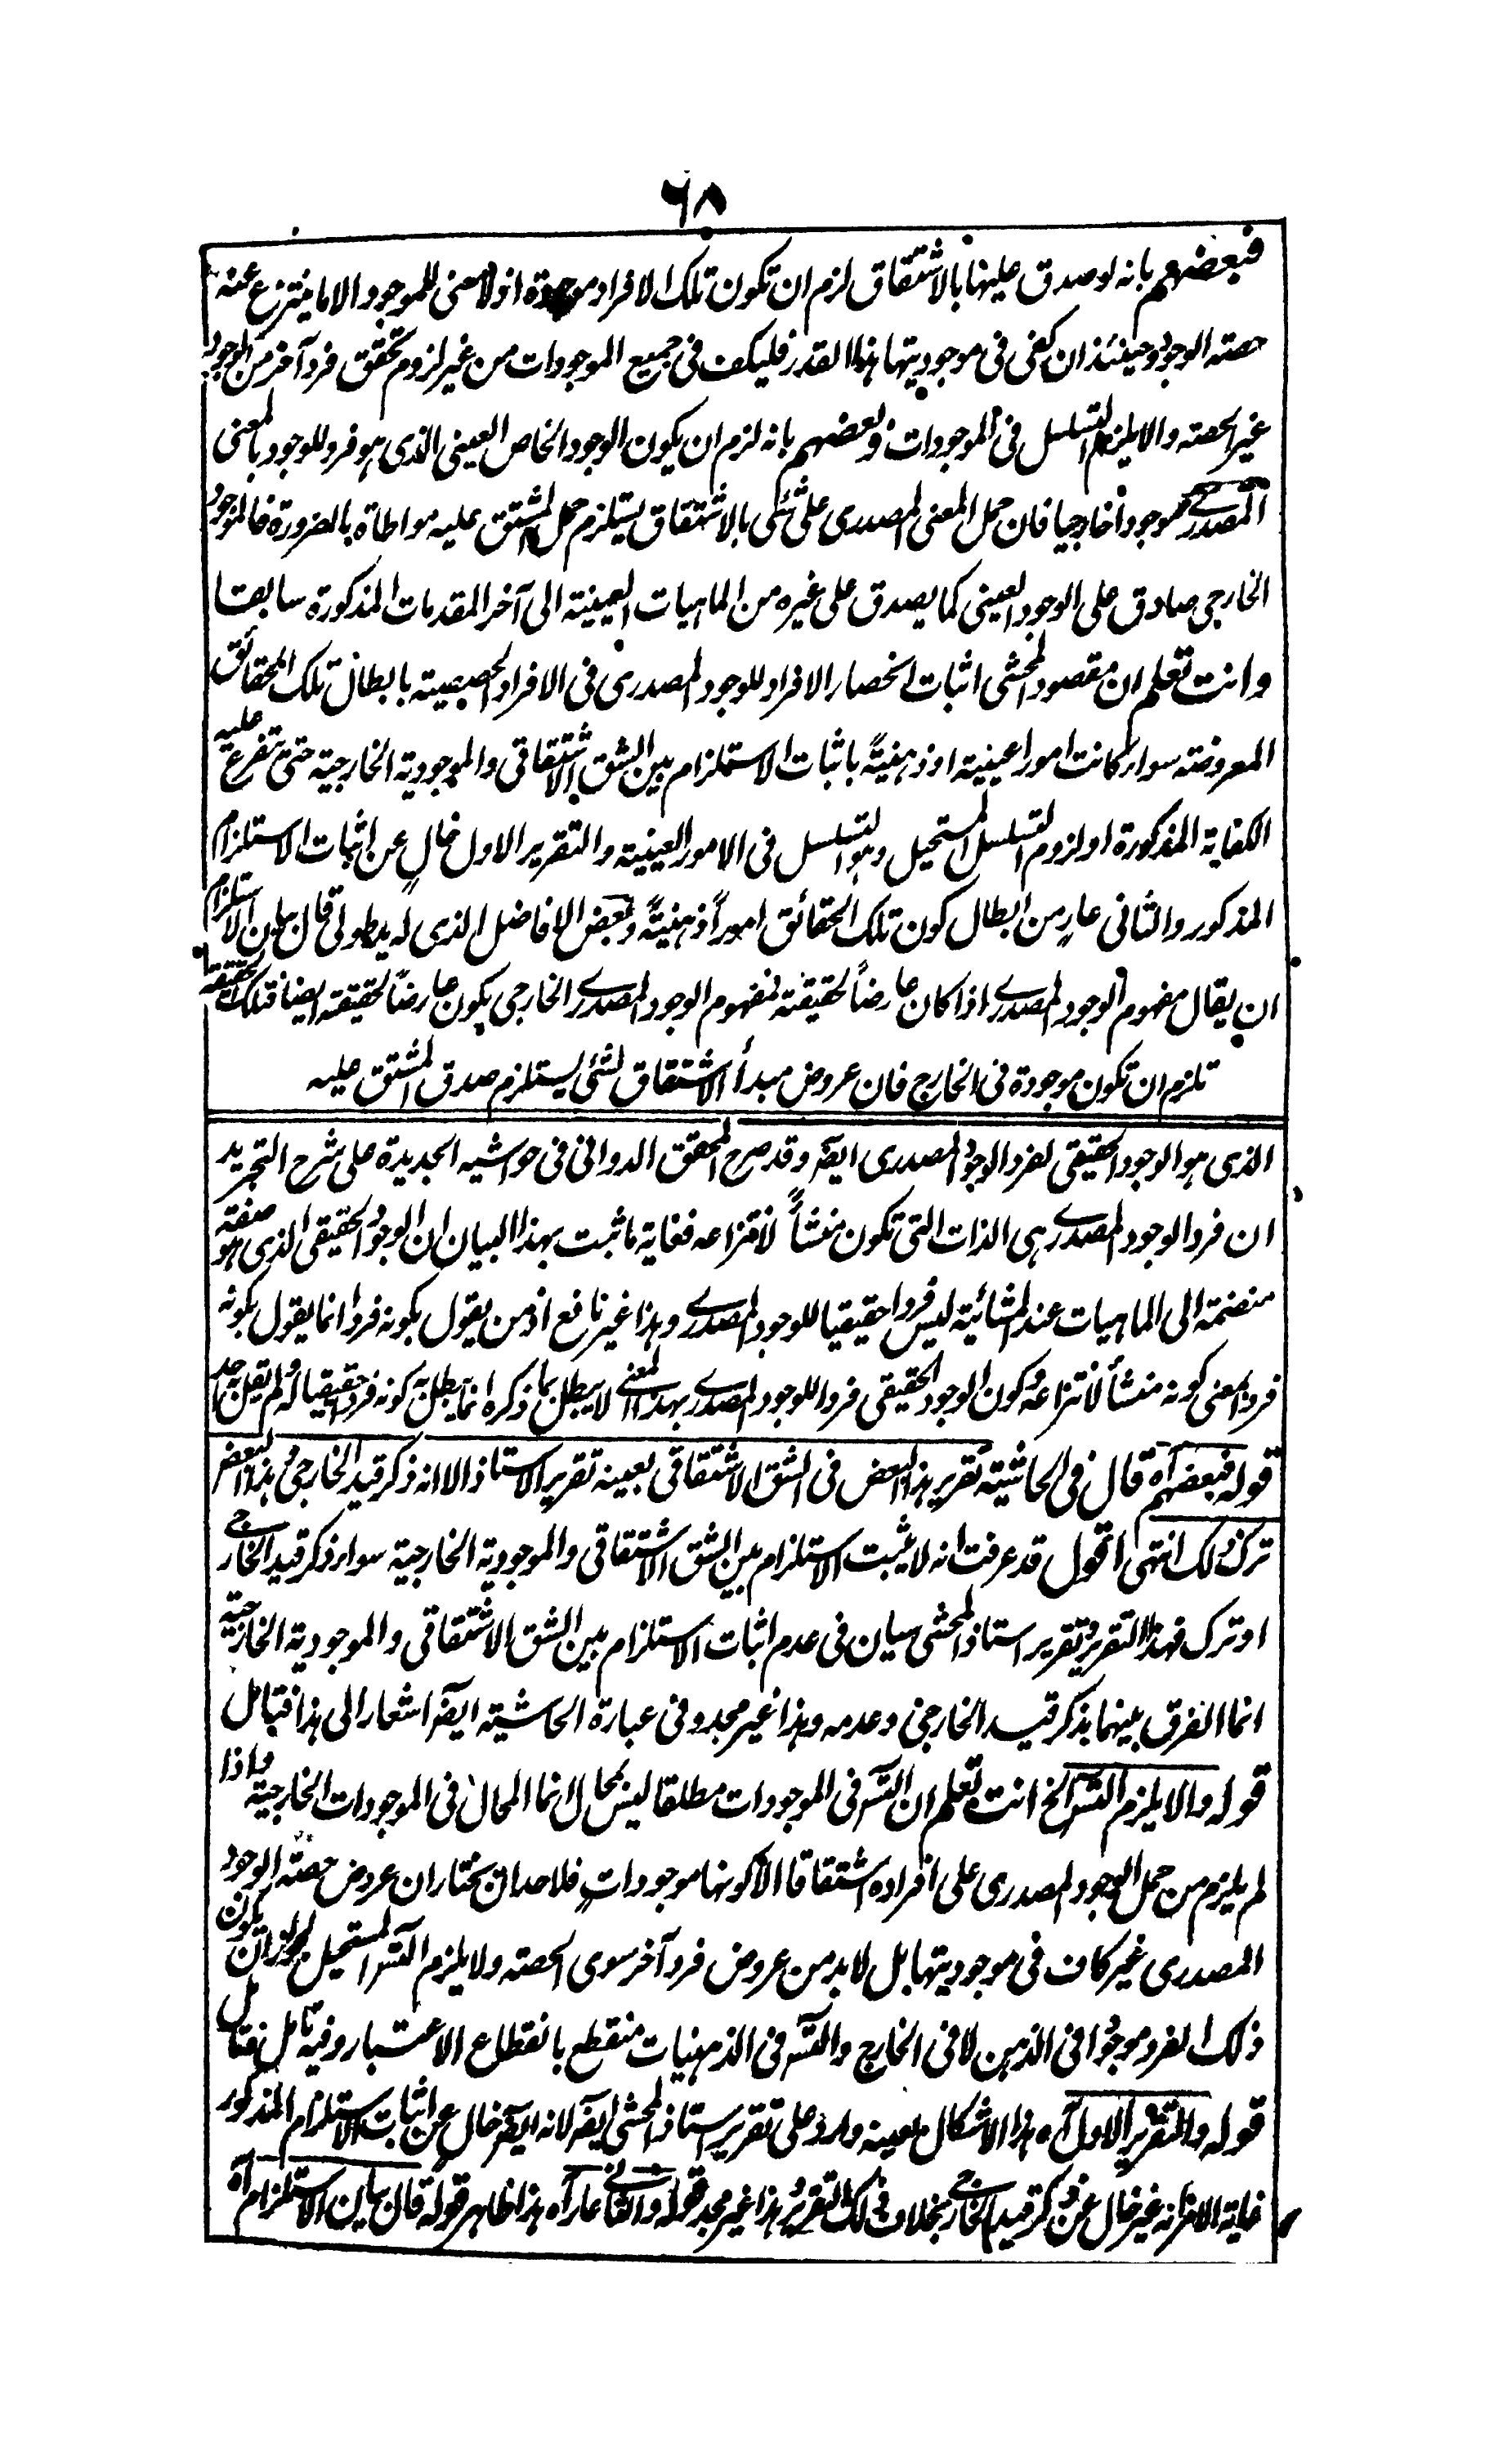 ٦٨
فبعضهم بانه لو صدق عليها بالاشتقاق لزم ان تكون تلك الافراد موجودة اذ لا معنى للموجود الا ما ينتزع عنه
حصته الوجود وحينئذ ان كفى فى موجوديتها هذا القدر فليكف فى جميع الموجودات من غير لزوم تحقق فرد آخر من الوجود
غير الحصته والا يلزم التسلسل فى الموجودات وبعضهم بانه لزم ان يكون الوجود الخاص العينى الذى هو فرد للوجود بالمعنى
المصدرى موجودا خارجيا فان حمل المعنى المصدرى على شئ بالاشتقاق يستلزم حمل المشتق عليه مواطاة بالضرورة فالموجود
الخارجى صادق على الوجود العينى كما يصدق على غيره من الماهيات العينية الى آخر المقدمات المذكورة سابقا
وانت تعلم ان مقصود المحشى اثبات انحصار الافراد للوجود المصدرى فى الافراد الحصصية بابطال تلك الحقائق
المعروضته سواء كانت امورا عينية او ذهنيةً باثبات الاستلزام بين الشق الاشتقاقى والموجودية الخارجية حتى يتفرع عليه
الكفاية المذكورة او لزوم التسلسل المستحيل وهو التسلسل فى الامور العينية والتقرير الاول خالٍ عن اثبات الاستلزام
المذكور والثانى عارٍ من ابطال كون تلك الحقائق اموراً ذهنيةً وبعض الافاضل الذى له يد طولى قال بيان الاستلزام
ان يقال مفهوم الوجود المصدرى اذا كان عارضاً لحقيقته فمفهوم الوجود المصدرى الخارجى يكون عارضاً لحقيقته ايضا فتلك الحقيقة
تلزم ان تكون موجودة فى الخارج فان عروض مبدأ الاشتقاق لشئ يستلزم صدق المشتق عليه
الذى هو الوجود الحقيقى لفرد الوجود المصدرى ايضً وقد صرح المحقق الدوانى فى حواشيه الجديدة على شرح التجريد
ان فرد الوجود المصدرى هى الذات التى تكون منشأً لانتزاعه فغاية ما ثبت بهذا البيان ان الوجود الحقيقى الذى هو صفته
منضمة الى الماهيات عند المشائية ليس فردا حقيقيا للوجود المصدرى وهذا غير نافع اذ من يقول بكونه فردا انما يقول بكونه
فردا بمعنى كونه منشأ لانتزاعه وكون الوجود الحقيقى فردا للوجود المصدرى بهذا المعنى لا يبطل بما ذكره انما يبطل به كونه فردا حقيقيا له ولم يقل به احد
قوله فبعضهم آه قال فى الحاشية تقرير هذا البعض فى الشق الاشتقاقى بعينه تقرير الاستاذ الا انه ذكر قيد الخارجى وهذا البعض
ترك ذلك انتهى اقول قد عرفت انه لا يثبت الاستلزام بين الشق الاشتقاقى والموجودية الخارجية سواء ذكر قيد الخارجى
او ترك فهذا التقرير وتقرير استاذ المحشى سيان فى عدم اثبات الاستلزام بين الشق الاشتقاقى والموجودية الخارجية
انما الفرق بينهما بذكر قيد الخارجى وعدمه وهذا غير مجد وفى عبارة الحاشية ايضً اشعار الى هذا فتامل
قوله والا يلزم التسً الخ انت تعلم ان التسً فى الموجودات مطلقا ليس بمحال انما المحال فى الموجودات الخارجية واذا
لم يلزم من حمل الوجود المصدرى على افراده اشتقاقا الا كونها موجوداتٍ فلاحد ان يختار ان عروض حصته الوجود
المصدرى غير كاف فى موجوديتها بل لا بد من عروض فرد آخر سوى الحصته ولا يلزم التسً المستحيل لجواز ان يكون
ذلك الفرد موجودا فى الذهن لا فى الخارج والتسً فى الذهنيات منقطع بانقطاع الاعتبار وفيه تامل فتامل
قوله والتقرير الاول آه هذا الاشكال بعينه وارد على تقرير استاذ المحشى ايضً لانه ايضً خال عن اثبات الاستلزام المذكور
غاية الامر انه غير خال عن ذكر قيد الخارجى بخلاف ذلك التقرير وهذا غير مجد قوله والثانى عار آه هذا ظاهر قوله قال بيان الاستلزام آه